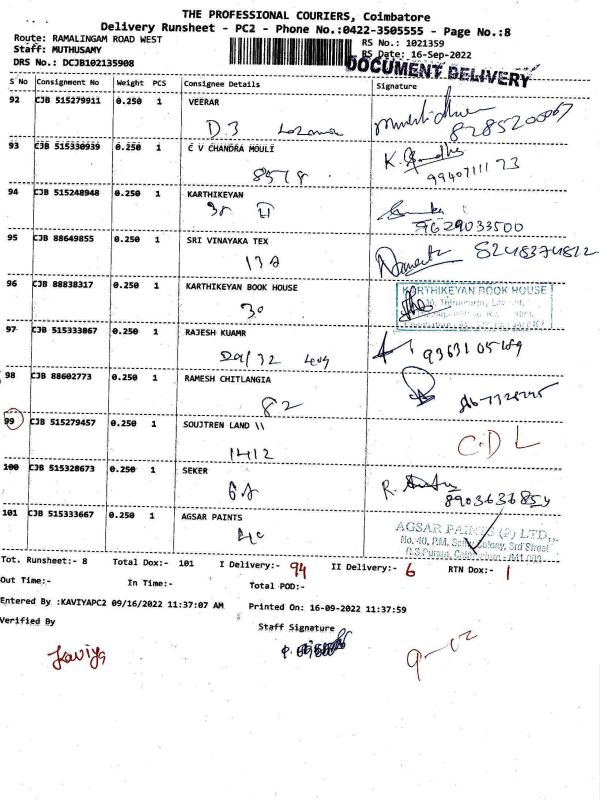 THE PROFESSIONAL COURIERS, Coimbatore
Delivery Runsheet - PC2 - Phone No.:0422-3505555 - Page No.:8
Route: RAMALINGAM ROAD WEST
RS No.: 1021359
Staff: MUTHUSAMY
RS Date: 16-Sep-2022
DRS No.: DCJB102135908
DOCUMENT DELIVERY
S No Consignment No Weight PCS Consignee Details Signature
92 CJB 515279911 0.250 1 VEERAR
D.3
8285200067
93 CJB 515330939 0.250 1 C V CHANDRA MOULI
K.
9940711173
94 CJB 515248948 0.250 1 KARTHIKEYAN
38 II
9629033500
95 CJB 88649855 0.250 1 SRI VINAYAKA TEX
8248374822
13A
96 CJB 88838317 0.250 1 KARTHIKEYAN BOOK HOUSE
KARTHIKEYAN BOOK HOUSE
30
97 CJB 515333867 0.250 1 RAJESH KUAMR
29/32
98 CJB 88602773 0.250 1 RAMESH CHITLANGIA
82
99 CJB 515279457 0.250 1 SOUJTREN LAND \\
C.D L
1412
100 CJB 515328673 0.250 1 SEKER
R.
8903636854
6A
101 CJB 515333667 0.250 1 AGSAR PAINTS
AGSAR PAINTS (P) LTD.,
40
No. 40, P.M. Samy Colony, 3rd Street
R.S.Puram, Coimbatore - 641 002
Tot. Runsheet:- 8 Total Dox:- 101 I Delivery:- 94 II Delivery:- 6 RTN Dox:- 1
Out Time:- In Time:- Total POD:-
Entered By :KAVIYAPC2 09/16/2022 11:37:07 AM Printed On: 16-09-2022 11:37:59
Verified By Staff Signature
Kaviya
9-02